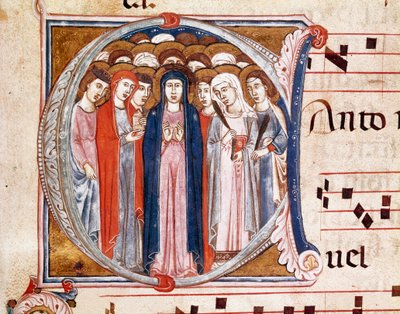 Anto
uel